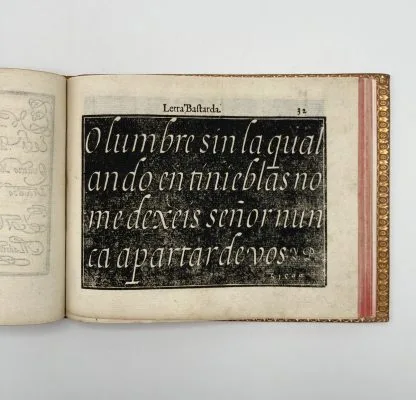 Letra Bastarda. 32
O lumbre sin la qual
ando en tinieblas no
me dexeis señor nun
ca apartar de vos